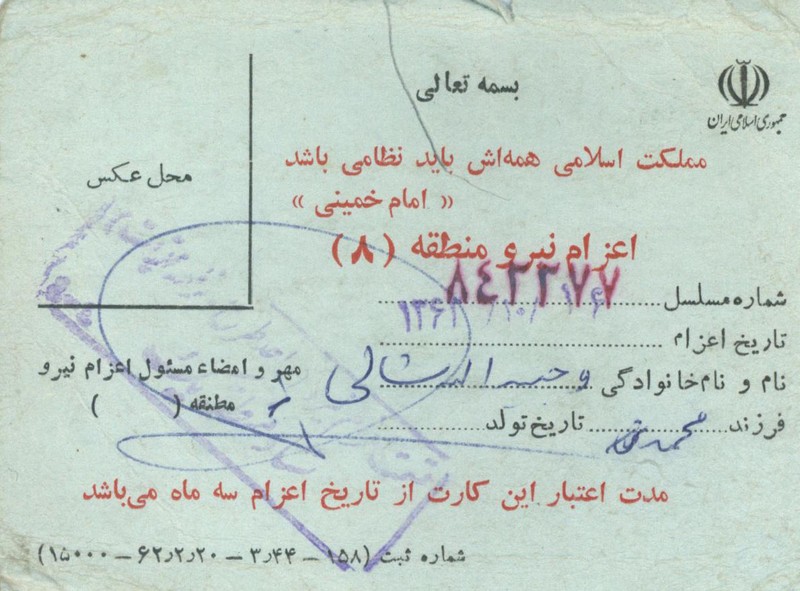 بسمه تعالی
جمهوری اسلامی ایران
مملکت اسلامی همه‌اش باید نظامی باشد
« امام خمینی »
اعزام نیرو منطقه (۸)
محل عکس
شماره مسلسل ۸۴۲۲۷۷
تاریخ اعزام
نام و نام خانوادگی وجیه اله شالی
فرزند محمد تاریخ تولد
مهر و امضاء مسئول اعزام نیرو
مطنقه ( )
مدت اعتبار این کارت از تاریخ اعزام سه ماه می‌باشد
شماره ثبت (۱۵۸ – ۳٫۴۴ – ۶۲٫۲٫۲۰ – ۱۵۰۰۰)